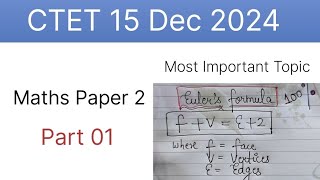 CTET 15 Dec 2024
Most Important Topic
Maths Paper 2
Part 01
Euler's formula 100%
f + V = E + 2
where f = face
V = Vertices
E = Edges